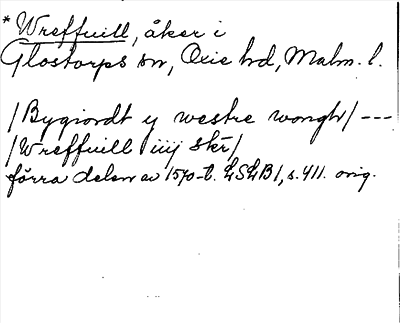 *Wreffuill, åker i
Glostorps sn, Oxie hd, Malm. l.
/Bygiordt y westre wongh/ ---
/Wreffuill iiij skr/
förra delen av 1570-t. LSLB1, s. 411. orig.